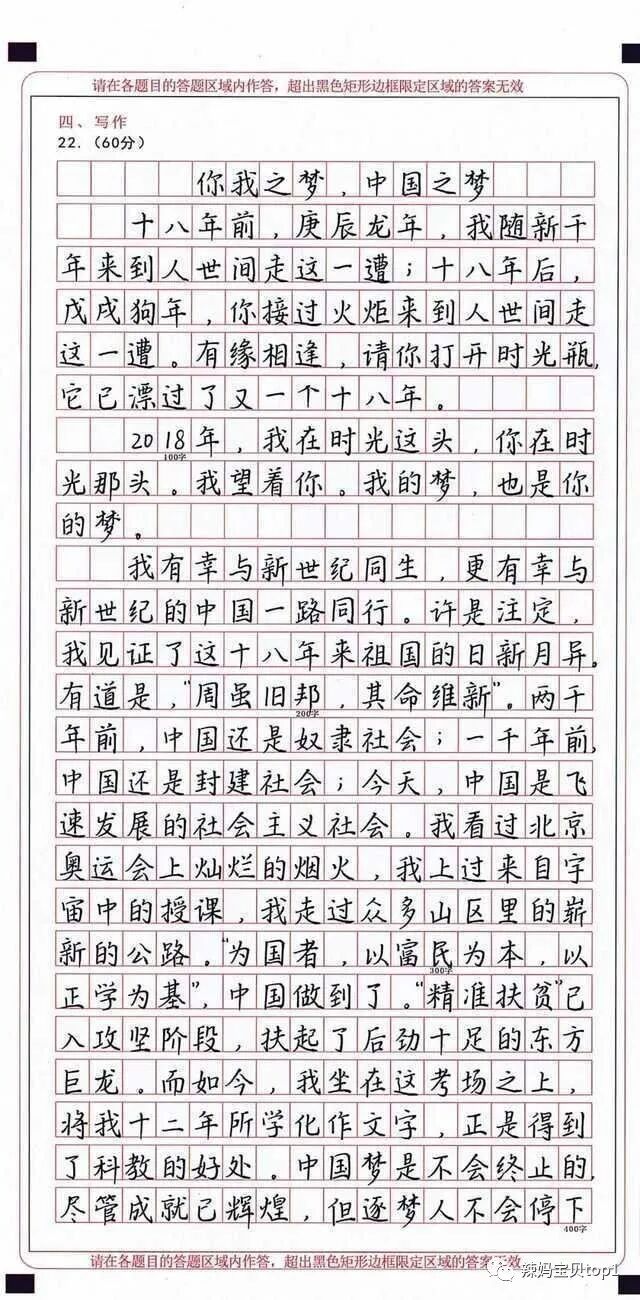 请在各题目的答题区域内作答，超出黑色矩形边框限定区域的答案无效
四、写作
22．（60分）
你我之梦，中国之梦
十八年前，庚辰龙年，我随新千
年来到人世间走这一遭；十八年后，
戊戌狗年，你接过火炬来到人世间走
这一遭。有缘相逢，请你打开时光瓶，
它已漂过了又一个十八年。
2018年，我在时光这头，你在时
100字
光那头。我望着你。我的梦，也是你
的梦。
我有幸与新世纪同生，更有幸与
新世纪的中国一路同行。许是注定，
我见证了这十八年来祖国的日新月异。
有道是，“周虽旧邦，其命维新”。两千
200字
年前，中国还是奴隶社会；一千年前，
中国还是封建社会；今天，中国是飞
速发展的社会主义社会。我看过北京
奥运会上灿烂的烟火，我上过来自宇
宙中的授课，我走过众多山区里的崭
新的公路。“为国者，以富民为本，以
300字
正学为基”，中国做到了。“精准扶贫”已
入攻坚阶段，扶起了后劲十足的东方
巨龙。而如今，我坐在这考场之上，
将我十二年所学化作文字，正是得到
了科教的好处。中国梦是不会终止的，
尽管成就已辉煌，但逐梦人不会停下
400字
请在各题目的答题区域内作答，超出黑色矩形边框限定区域的答案无效
辣妈宝贝top1